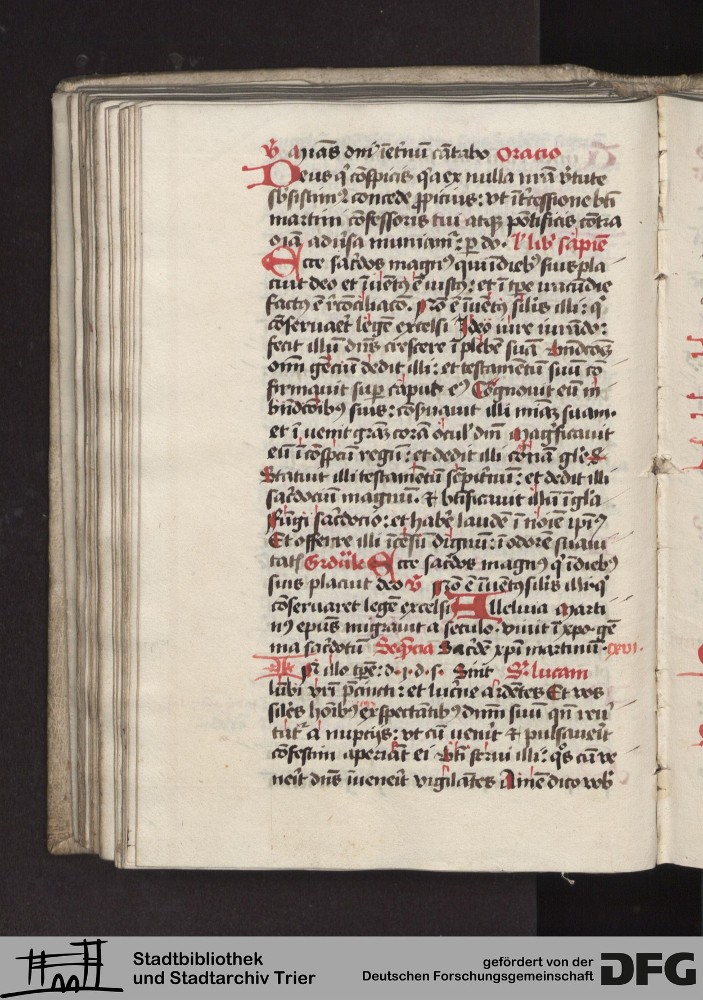 V Mias dni ieternu cantabo Oracio
Deus q̄ conspicis q̄a ex nulla nr̄a v̄tute
sb̄sistim9: concede ꝓpicius: vt int̄cessione bt̄i
martini confessoris tui atqꝫ pontificis contra
oīa aduersa muniamur: p do. L' lib' sapiē
Ecce sacerdos magn9 qui i dieb9 suis pla
cuit deo et i uent9 ē iust9: et i tꝑe iracūdie
fact9 ē r̄conciliacō. Nō ē i uent9 silis illi: q̄
cōseruaret legē excelsi Ideo iure iurādo:
fecit illū dn̄s crescere i plebē suā Bn̄dcōꝫ
oīm genciū dedit illi: et testamentū suū cō
firmauit suꝑ caput e9 Cōgnouit eū in
bn̄dcōib9 suis: cōseruauit illi miaꝫ suam.
et i uenit grāꝫ corā ocul' dn̄i Magnificauit
eū i cōspcū regū: et dedit illi coronā glē
Statuit illi testamentū sēpiternū: et dedit illi
sacerdociū magnū. & btificauit illū i gla
fūgi sacerdocio: et habē laudē i noīe ip̄i9
Et offerre illi incēsū dignū: i odorē suaui
tatis Gradūle Ecce sacerdos magn9 q̄ i dieb9
suis placuit deo V Nō ē i uent9 silis illi: q̄
cōseruaret legē excelsi Alleluia Marti
n9 epūs migrauit a seculo. viuit i xp̄o. gē
ma sacerdotū Seq̄ncia Sacerdē xp̄i martinū. cxvi.
In illo tꝑe: d. i. d. s. Sint S. lucam
lūbi vr̄i p̄cincti: et lucerne ardētes Et vos
siles hoib9 expectātib9 dn̄m suū qn̄ reu'
tat' a nuptijs: vt cū uenit & pulsauerit
cōfestim aperiāt ei Bti serui illi: q̄s cū ve
nerit dn̄s i uenerit vigilātes Amē dico vob'
Stadtbibliothek
und Stadtarchiv Trier
gefördert von der
Deutschen Forschungsgemeinschaft
DFG